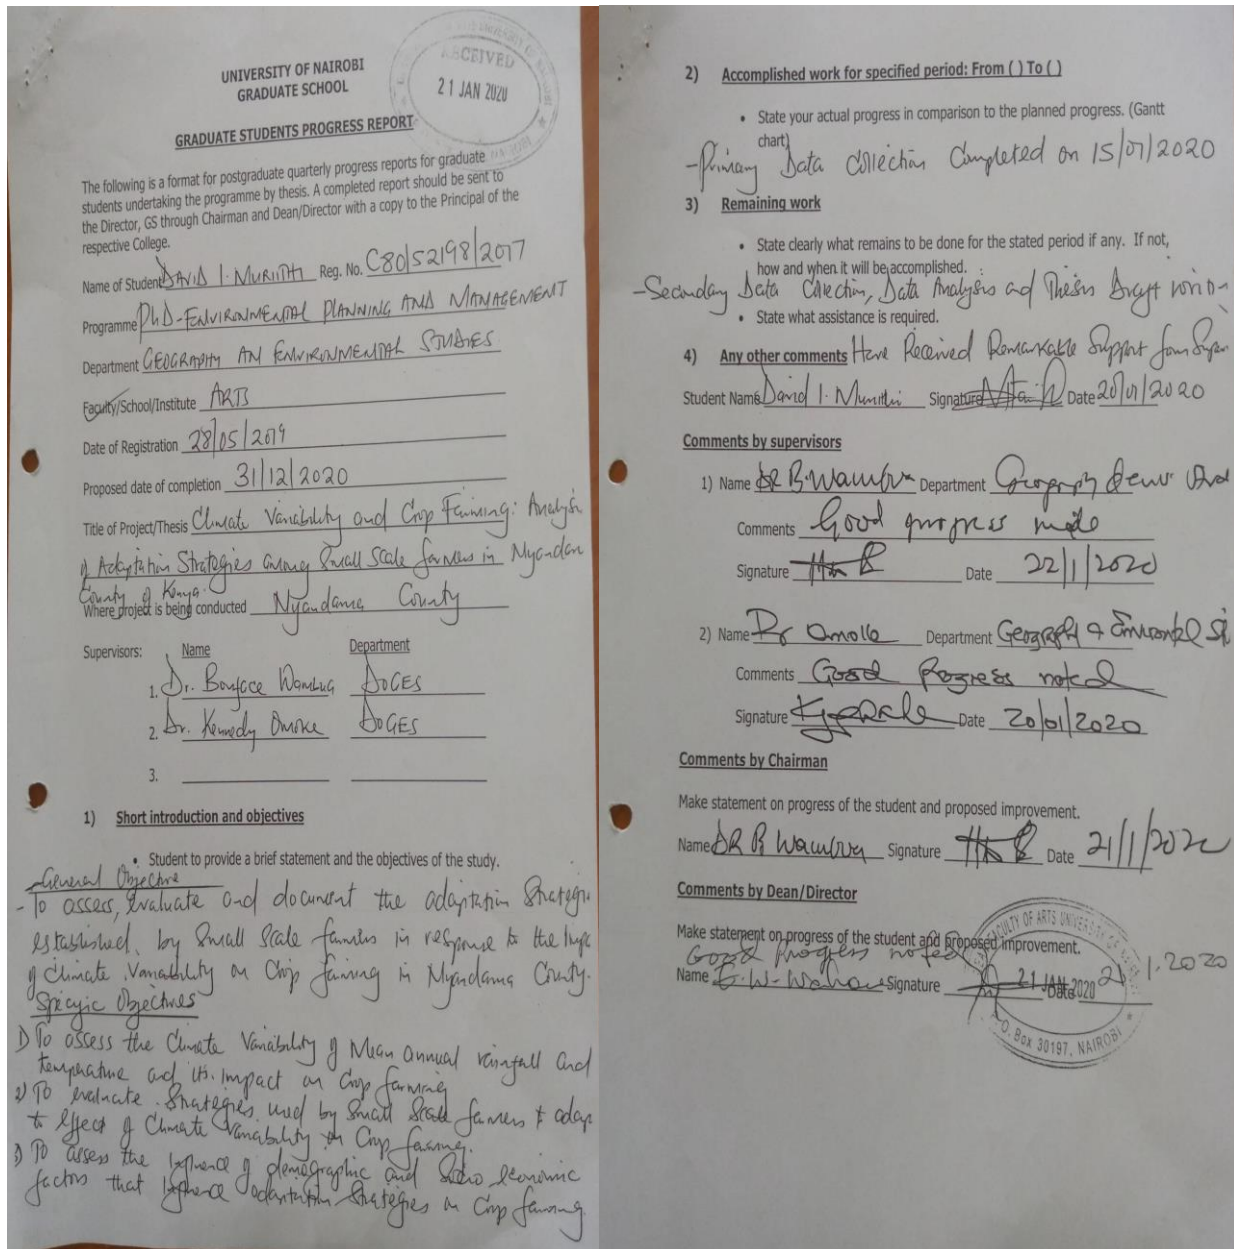 UNIVERSITY OF NAIROBI
GRADUATE SCHOOL
RECEIVED
21 JAN 2020
GRADUATE STUDENTS PROGRESS REPORT
The following is a format for postgraduate quarterly progress reports for graduate
students undertaking the programme by thesis. A completed report should be sent to
the Director, GS through Chairman and Dean/Director with a copy to the Principal of the
respective College.
Name of Student DAVID I. MURIITHI Reg. No. C80/52198/2017
Programme PhD-ENVIRONMENTAL PLANNING AND MANAGEMENT
Department GEOGRAPHY AN ENVIRONMENTAL STUDIES
Faculty/School/Institute ARTS
Date of Registration 28/05/2019
Proposed date of completion 31/12/2020
Title of Project/Thesis Climate Variability and Crop Farming: Analysis
of Adaptation Strategies among Small Scale farmers in Nyandaru
County of Kenya.
Where project is being conducted Nyandarua County
Supervisors: Name Department
1. Dr. Boniface Wambua DOGES
2. Dr. Kennedy Omoke DOGES
3.
1) Short introduction and objectives
• Student to provide a brief statement and the objectives of the study.
-General Objective
- To assess, evaluate and document the adaptation Strategie
established by Small Scale farmers in response to the Impa
of Climate Variability on Crop farming in Nyandarua County.
Specific Objectives
1) To assess the Climate Variability of Mean annual rainfall and
temperature and its impact on Crop farming
2) To evaluate Strategies used by Small Scale farmers to adap
to effect of Climate Variability on Crop farming.
3) To assess the Influence of demographic and Socio economic
factors that Influence adaptation Strategies on Crop farming
2) Accomplished work for specified period: From ( ) To ( )
• State your actual progress in comparison to the planned progress. (Gantt
chart)
-Primary Data Collection Completed on 15/01/2020
3) Remaining work
• State clearly what remains to be done for the stated period if any. If not,
how and when it will be accomplished.
-Secondary Data Collection, Data Analysis and Thesis Draft
• State what assistance is required.
4) Any other comments Have Received Remarkable Support from Super
Student Name David I. Muriithi Signature Date 20/01/2020
Comments by supervisors
1) Name DR B. Wambua Department Geography & env
Comments Good progress made
Signature Date 22/1/2020
2) Name Dr Omoke Department Geography & Environmental St
Comments Good Progress noted
Signature Date 20/01/2020
Comments by Chairman
Make statement on progress of the student and proposed improvement.
Name DR B Wambua Signature Date 21/1/2020
Comments by Dean/Director
Make statement on progress of the student and proposed improvement.
Good progress noted
Name Signature Date 21.1.2020
FACULTY OF ARTS UNIVERSITY OF NAIROBI
21 JAN 2020
P.O. Box 30197, NAIROBI